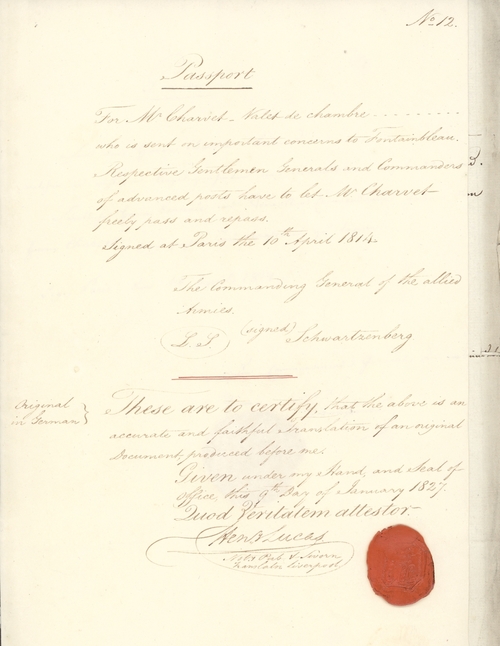 No 12.
Passport
For Mr Charvet - Valet de chambre . . . . . . . . .
who is sent on important concerns to Fontainbleau.
Respective Gentlemen Generals and Commanders
of advanced posts have to let Mr Charvet
freely pass and repass.
Signed at Paris the 10th April 1814.
The Commanding General of the allied
Armies.
L. S. (signed) Schwartzenberg
Original
in German }
These are to certify, that the above is an
accurate and faithful translation of an original
Document, produced before me.
Given under my Hand, and Seal of
office this 9th Day of January 1827.
Quod Veritatem attestor.
Heny Lucas
Noty Pub & Sworn
Translator Liverpool